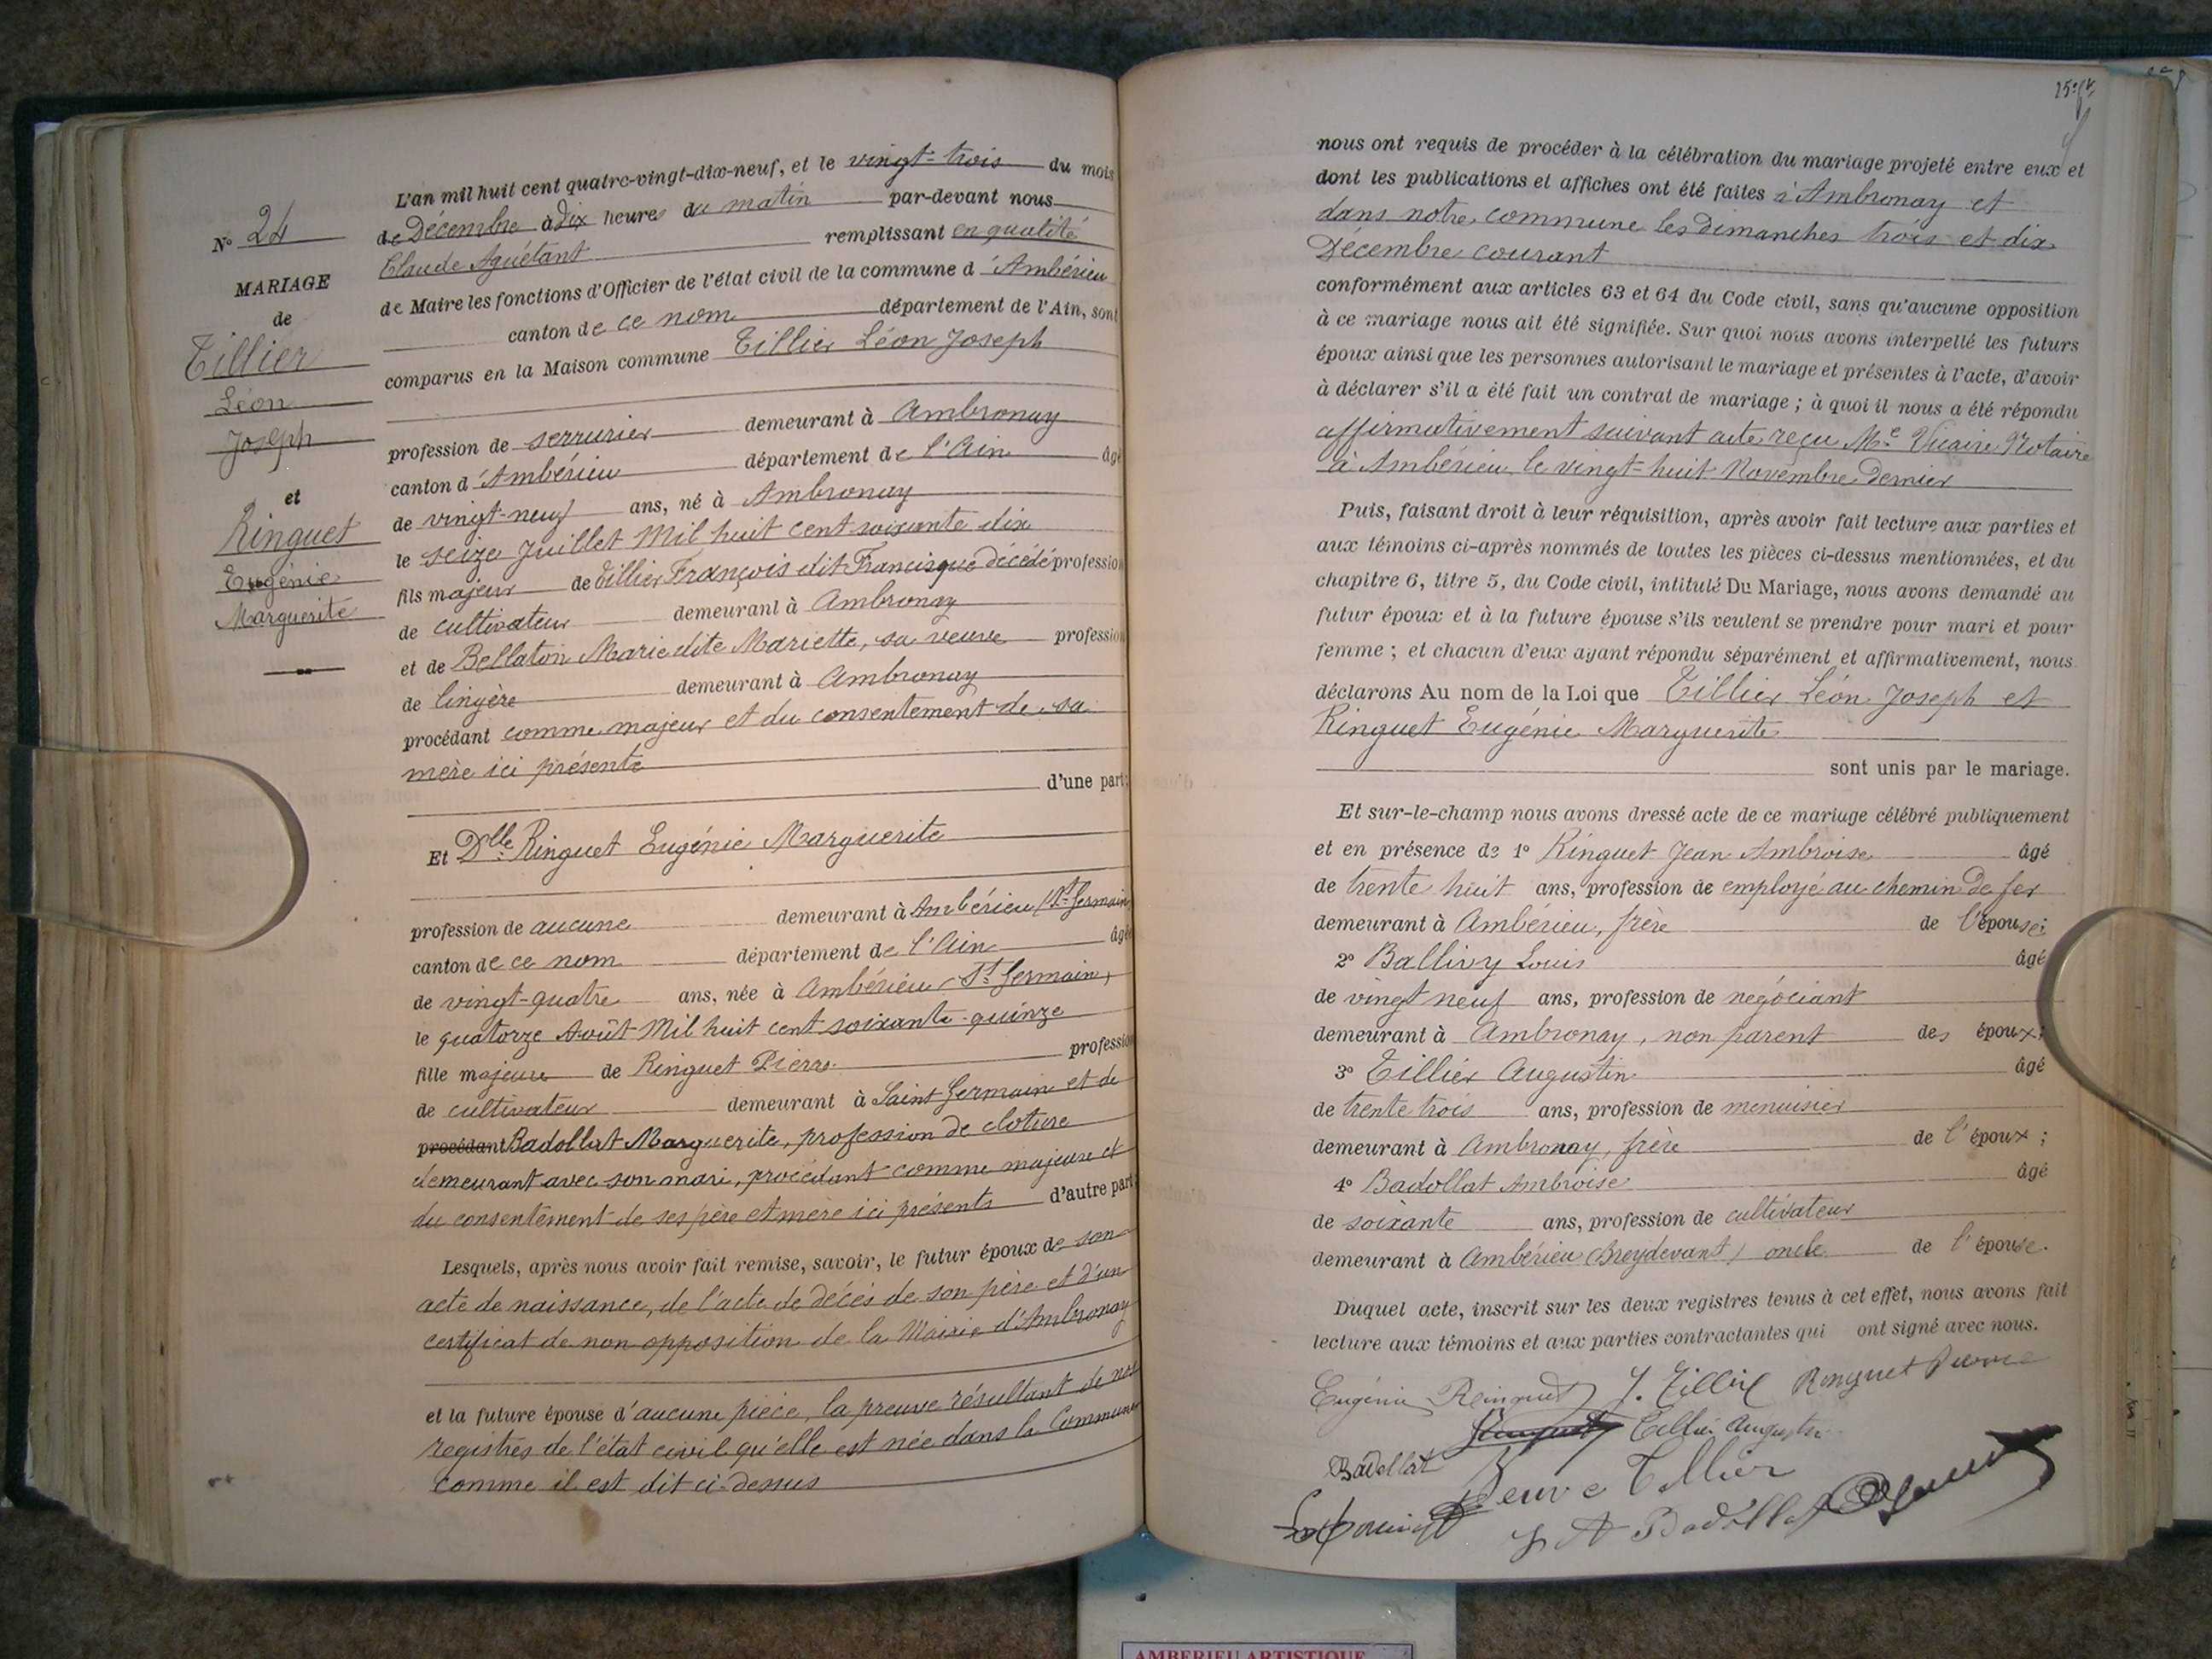 L'an mil huit cent quatre-vingt-dix-neuf, et le vingt-trois du mois
de Décembre à Dix heures du matin par-devant nous
Claude Aguétant remplissant en qualité
de Maire les fonctions d'Officier de l'état civil de la commune d'Ambérieu
canton de ce nom département de l'Ain, sont
comparus en la Maison commune Tillier Léon Joseph
profession de serrurier demeurant à Ambronay
canton d'Ambérieu département de l'Ain âgé
de vingt-neuf ans, né à Ambronay
le seize Juillet Mil huit cent soixante dix
fils majeur de Tillier François dit Francisque décédé profession
de cultivateur demeurant à Ambronay
et de Bellaton Marie dite Mariette, sa veuve profession
de lingère demeurant à Ambronay
procédant comme majeur et du consentement de sa
mère ici présente
d'une part;
Et Dlle Ringuet Eugénie Marguerite
profession de aucune demeurant à Ambérieu (St Germain)
canton de ce nom département de l'Ain âgée
de vingt-quatre ans, née à Ambérieu (St Germain)
le quatorze Août Mil huit cent soixante-quinze
fille majeure de Ringuet Pierre profession
de cultivateur demeurant à Saint Germain et de
procédant Badollat Marguerite, profession de cloture
demeurant avec son mari, procédant comme majeure et
du consentement de ses père et mère ici présents d'autre part;
Lesquels, après nous avoir fait remise, savoir, le futur époux de son
acte de naissance, de l'acte de décès de son père et d'un
certificat de non opposition de la Mairie d'Ambronay
et la future épouse d'aucune pièce, la preuve résultant de nos
registres de l'état civil qu'elle est née dans la Commune
comme il est dit ci-dessus
N° 24
MARIAGE
de
Tillier
Léon
Joseph
et
Ringuet
Eugénie
Marguerite
nous ont requis de procéder à la célébration du mariage projeté entre eux et
dont les publications et affiches ont été faites à Ambronay et
dans notre commune les Dimanches trois et dix
Décembre courant
conformément aux articles 63 et 64 du Code civil, sans qu'aucune opposition
à ce mariage nous ait été signifiée. Sur quoi nous avons interpellé les futurs
époux ainsi que les personnes autorisant le mariage et présentes à l'acte, d'avoir
à déclarer s'il a été fait un contrat de mariage; à quoi il nous a été répondu
affirmativement suivant acte reçu Me Vicaire Notaire
à Ambérieu le vingt-huit Novembre Dernier
Puis, faisant droit à leur réquisition, après avoir fait lecture aux parties et
aux témoins ci-après nommés de toutes les pièces ci-dessus mentionnées, et du
chapitre 6, titre 5, du Code civil, intitulé Du Mariage, nous avons demandé au
futur époux et à la future épouse s'ils veulent se prendre pour mari et pour
femme; et chacun d'eux ayant répondu séparément et affirmativement, nous
déclarons Au nom de la Loi que Tillier Léon Joseph et
Ringuet Eugénie Marguerite
sont unis par le mariage.
Et sur-le-champ nous avons dressé acte de ce mariage célébré publiquement
et en présence de 1° Ringuet Jean Ambroise âgé
de trente huit ans, profession de employé au chemin de fer
demeurant à Ambérieu, frère de l'épouse;
2° Ballivy Louis âgé
de vingt neuf ans, profession de négociant
demeurant à Ambronay, non parent des époux;
3° Tillier Augustin âgé
de trente trois ans, profession de menuisier
demeurant à Ambronay, frère de l'époux;
4° Badollat Ambroise âgé
de soixante ans, profession de cultivateur
demeurant à Ambérieu (Breydevant) oncle de l'épouse.
Duquel acte, inscrit sur les deux registres tenus à cet effet, nous avons fait
lecture aux témoins et aux parties contractantes qui ont signé avec nous.
Eugénie Ringuet J. Tillier Ringuet Pierre
Tillier Augustin
Badollat Veuve Tillier
A Badollat
AMBERIEU ARTISTIQUE